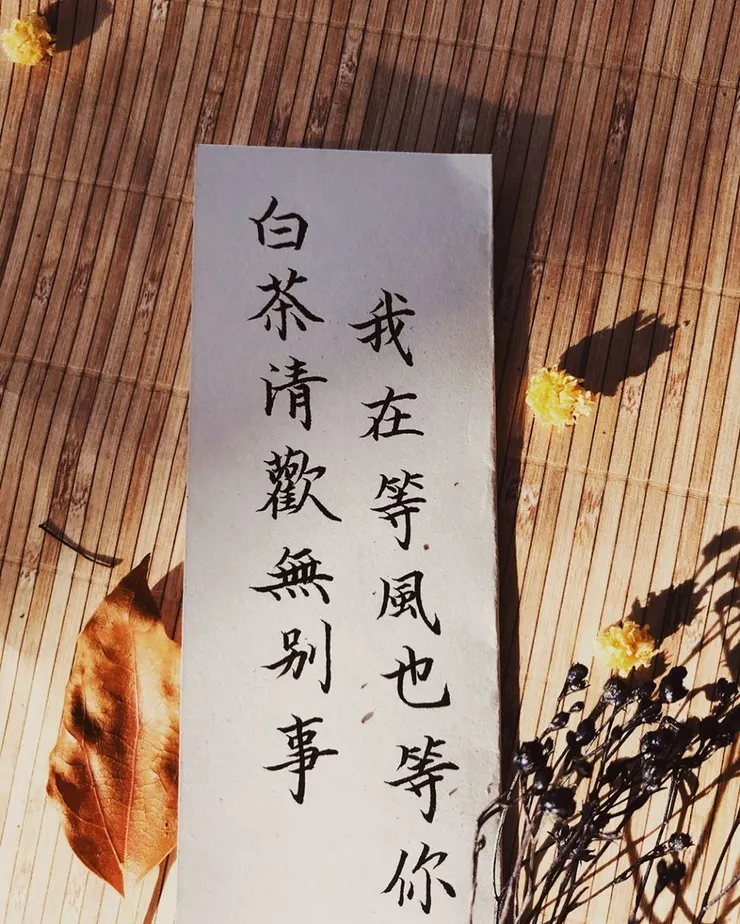 白茶清歡無别事
我在等風也等你